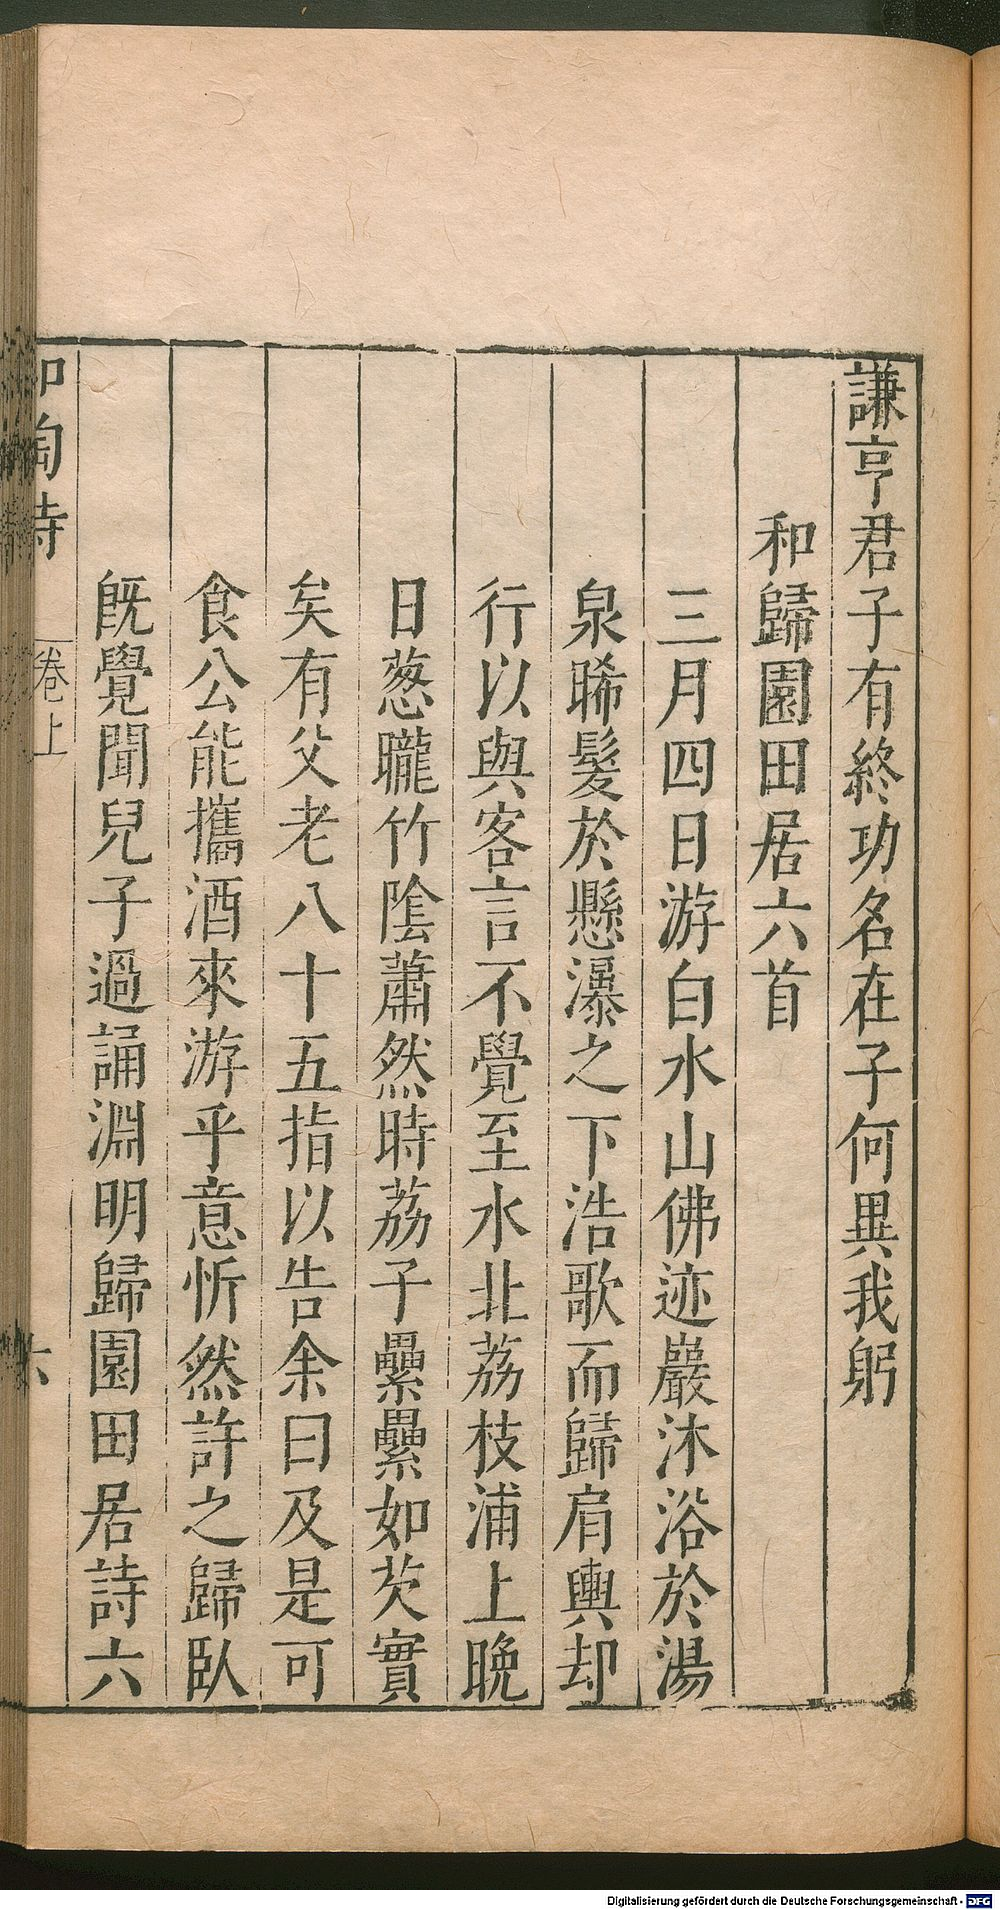 謙亨君子有終功名在子何異我躬
和歸園田居六首
三月四日游白水山佛迹巖沐浴於湯
泉晞髮於懸瀑之下浩歌而歸肩輿却
行以與客言不覺至水北荔枝浦上晚
日葱曨竹陰蕭然時荔子纍纍如芡實
矣有父老八十五指以告余曰及是可
食公能攜酒來游乎意忻然許之歸臥
旣覺聞兒子過誦淵明歸園田居詩六
和陶詩 卷上 六
Digitalisierung gefördert durch die Deutsche Forschungsgemeinschaft - DFG